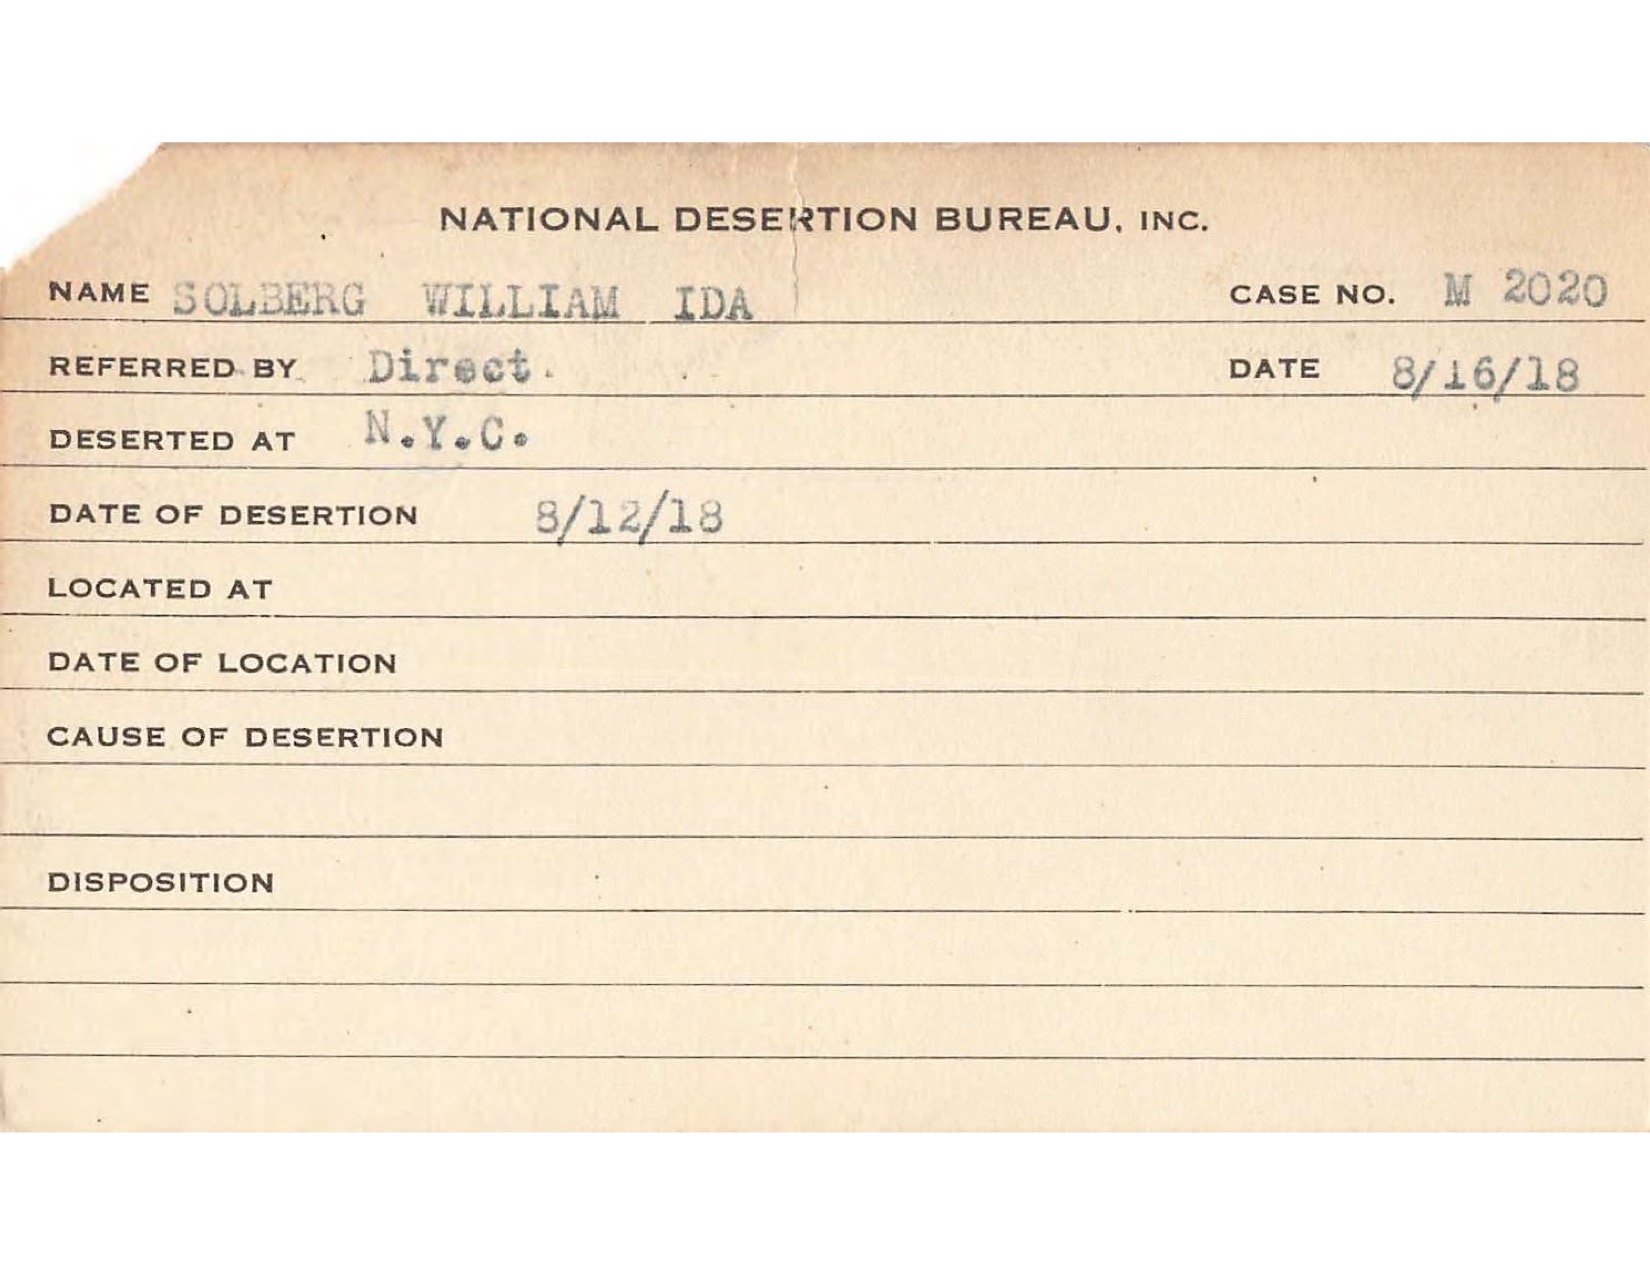 NATIONAL DESERTION BUREAU, INC.
NAME SOLBERG WILLIAM IDA CASE NO. M 2020
REFERRED BY Direct. DATE 8/16/18
DESERTED AT N.Y.C.
DATE OF DESERTION 8/12/18
LOCATED AT
DATE OF LOCATION
CAUSE OF DESERTION
DISPOSITION